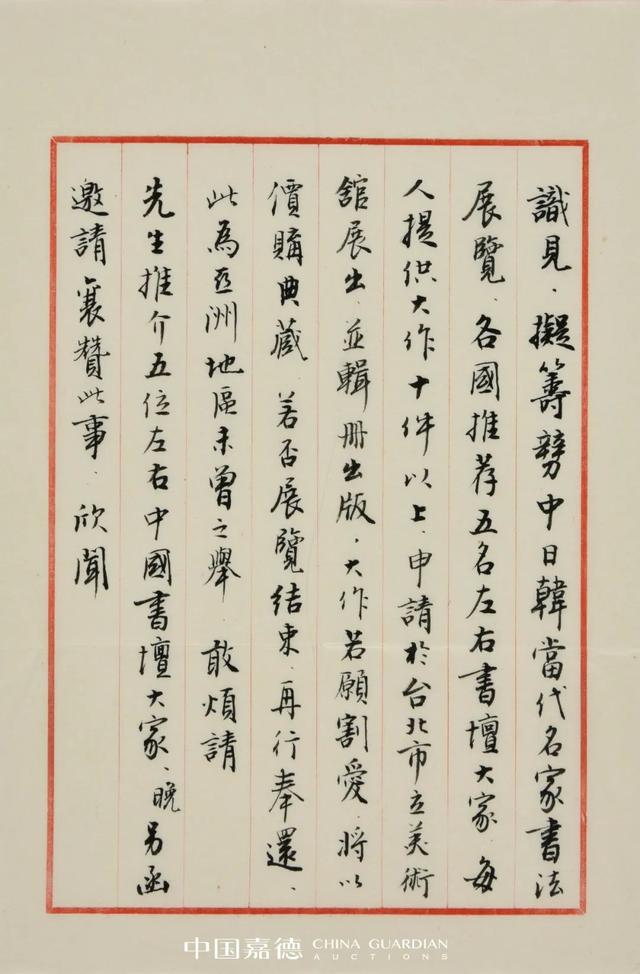 識見、擬籌辦中日韓當代名家書法
展覽、各國推荐五名左右書壇大家、每
人提供大作十件以上、申請於台北市立美術
舘展出、並輯冊出版、大作若願割愛、將以
價購典藏、若否展覽結束、再行奉還、
此為亞洲地區未曾之舉、敢煩請
先生推介五位左右中國書壇大家、晚另函
邀請襄贊此事、欣聞
中国嘉德 CHINA GUARDIAN
AUCTIONS